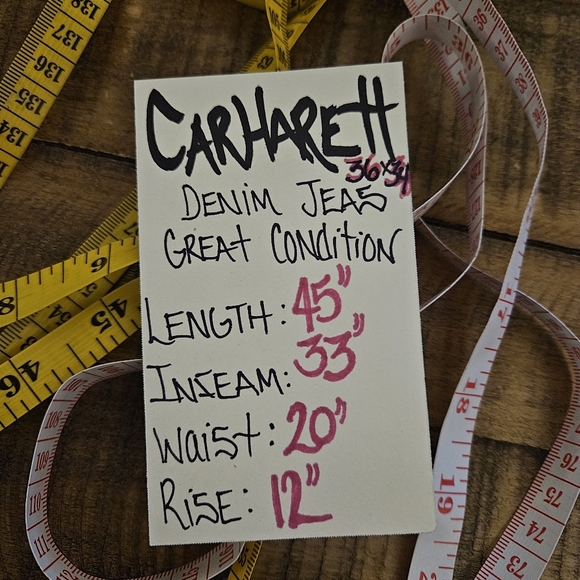 CARHARETT
36x34
DENIM JEAS
GREAT CONDITION
LENGTH: 45"
INSEAM: 33"
WAIST: 20"
RISE: 12"
138
137
136
135
134
45
46
8
110
109
108
111
17
18
19
36
76
75
74
73